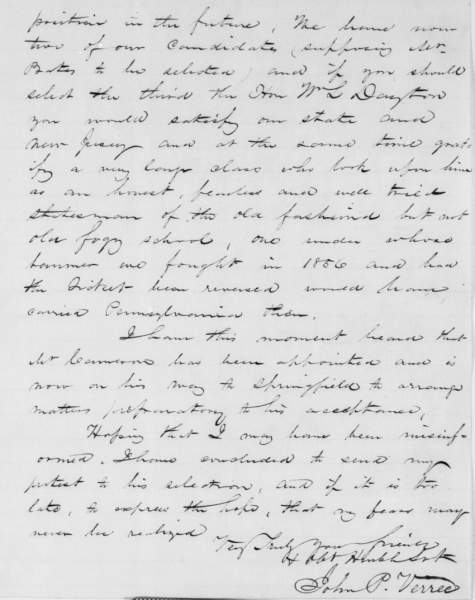 position in the future, We have now
two of our Candidates (supposing Mr
Bates to be selected) and if you should
select the third the Hon Wm L Dayton
you would satisfy our state and
New Jersey and at the same time grat-
ify a very large class who look upon him
as an honest, fearless and well tried
statesman of the old fashiond but not
old fogy school, one under whose
banner we fought in 1856 and had
the Ticket been reversed would have
carried Pennsylvania then.
I have this moment heard that
Mr Cameron has been appointed and is
now on his way to Springfield to arrange
matters preparatory to his acceptance,
Hoping that I may have been misinf-
ormed. I have concluded to send my
protest to his selection, and if it is too
late, to express the hope, that my fears may
never be realized
Very Truly Your friend
& Obt Humbl Svt
John P. Verree